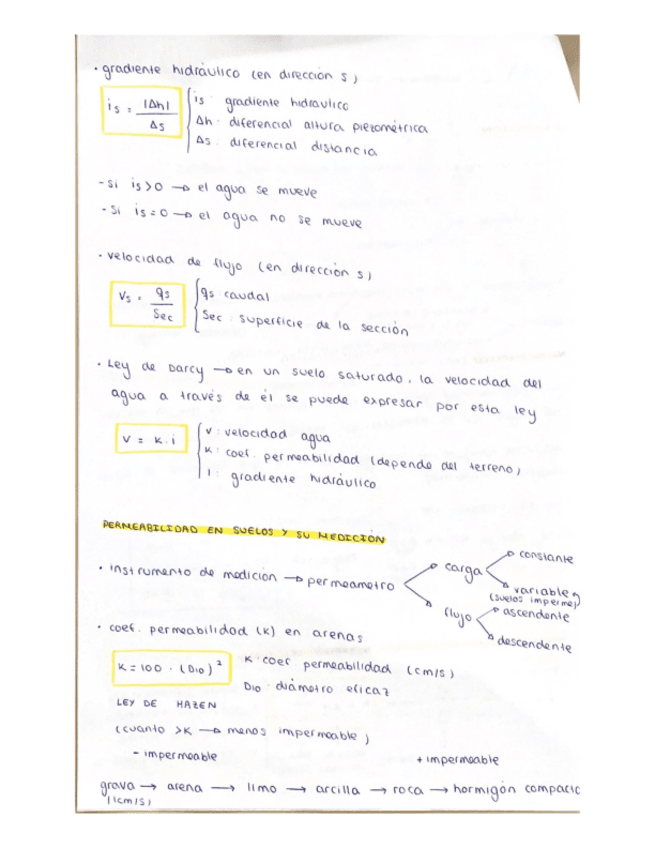 · gradiente hidráulico (en dirección s)
is = |Δh| / Δs
is: gradiente hidraulico
Δh: diferencial altura piezométrica
Δs: diferencial distancia
- si is>0 → el agua se mueve
- Si is=0 → el agua no se mueve
· velocidad de flujo (en dirección s)
Vs = qs / Sec
qs: caudal
Sec: superficie de la sección
· Ley de Darcy → en un suelo saturado, la velocidad del
agua a través de él se puede expresar por esta ley
V = K·i
V: velocidad agua
K: coef. permeabilidad (depende del terreno)
i: gradiente hidráulico
PERMEABILIDAD EN SUELOS Y SU MEDICIÓN
· instrumento de medición → permeametro
carga
constante
variable
(suelos imperme)
flujo
ascendente
descendente
· coef. permeabilidad (K) en arenas
K = 100 · (D10)²
K: coef. permeabilidad (cm/s)
D10: diámetro eficaz
LEY DE HAZEN
(cuanto >K → menos impermeable)
- impermeable + impermeable
grava → arena → limo → arcilla → roca → hormigón compacto
(1cm/s)